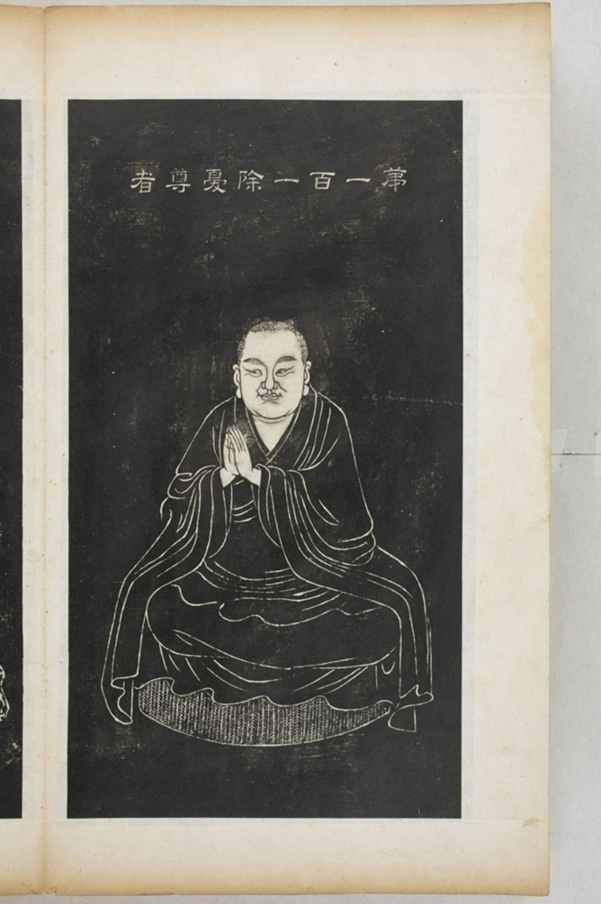 苐一百一除憂尊者